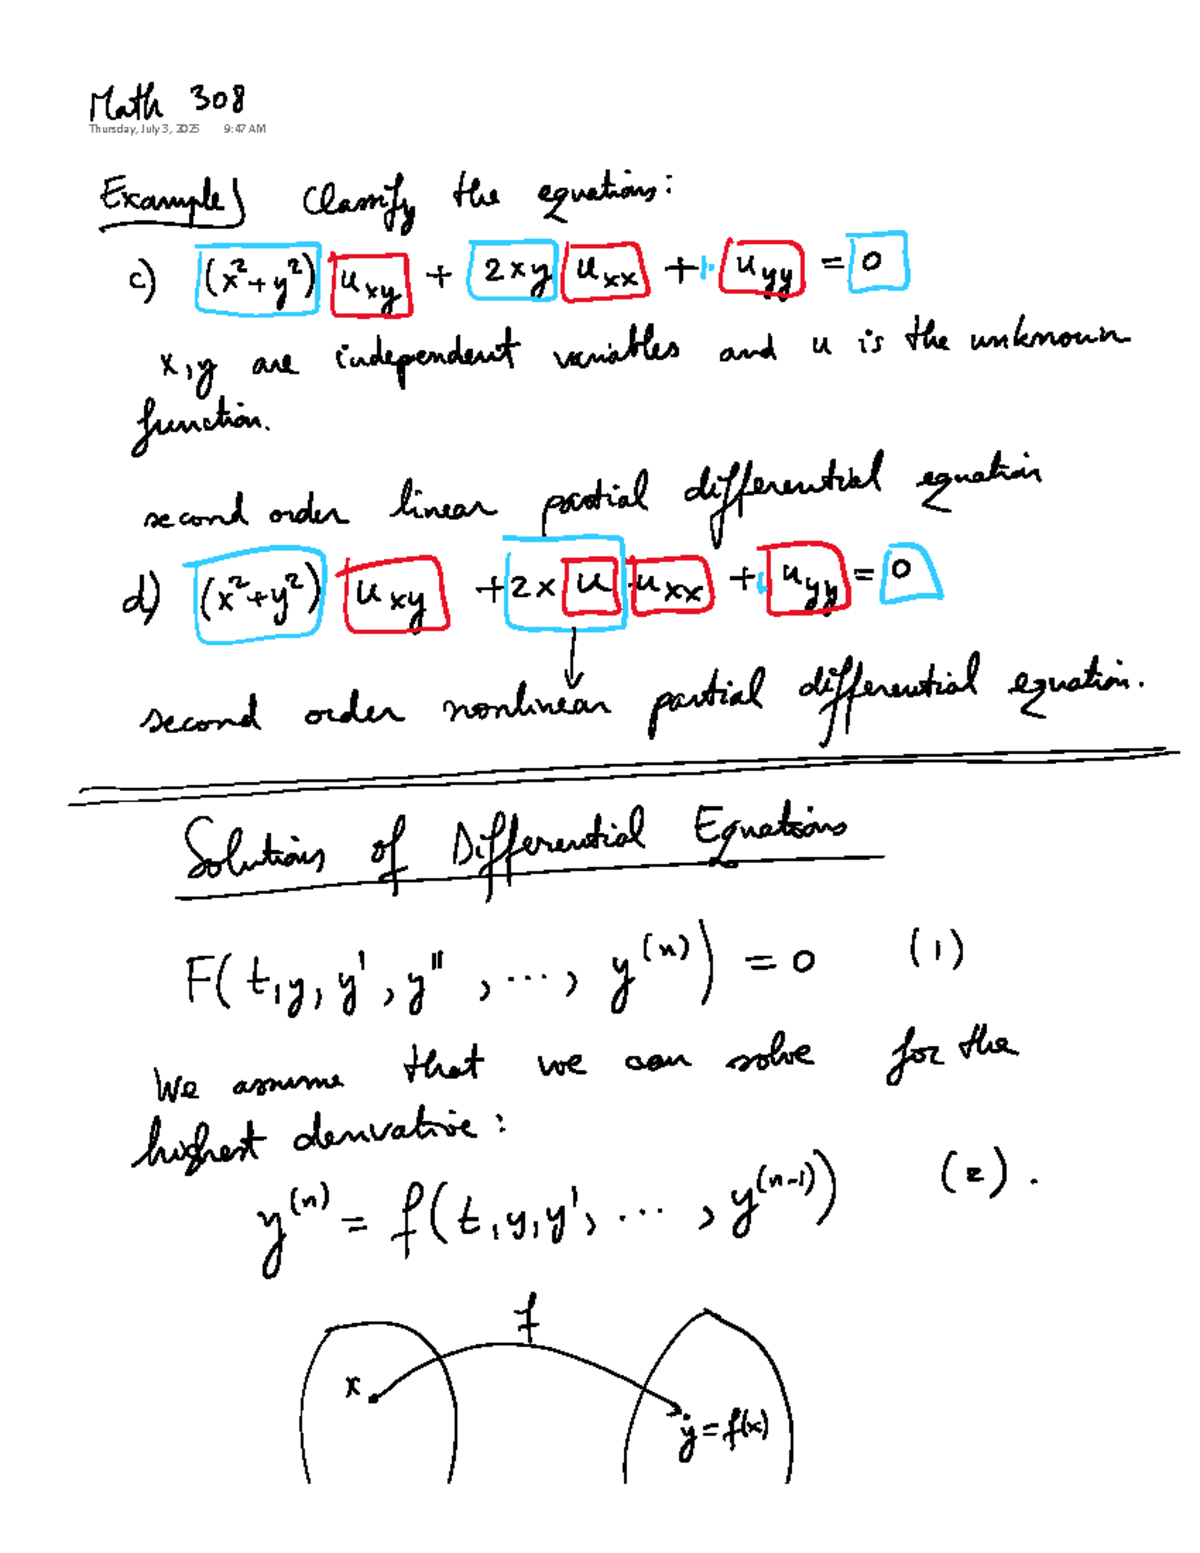 Math 308
Thursday, July 3, 2025 9:47 AM
Example) Classify the equations:
c) (x²+y²) u_xy + 2xy u_xx + 1· u_yy = 0
x, y are independent variables and u is the unknown
function.
second order linear partial differential equation
d) (x²+y²) u_xy + 2x u · u_xx + 1· u_yy = 0
second order nonlinear partial differential equation.
Solutions of Differential Equations
F(t, y, y', y'', ..., y^(n)) = 0 (1)
We assume that we can solve for the
highest derivative:
y^(n) = f(t, y, y', ..., y^(n-1)) (2).
f
x
y = f(x)